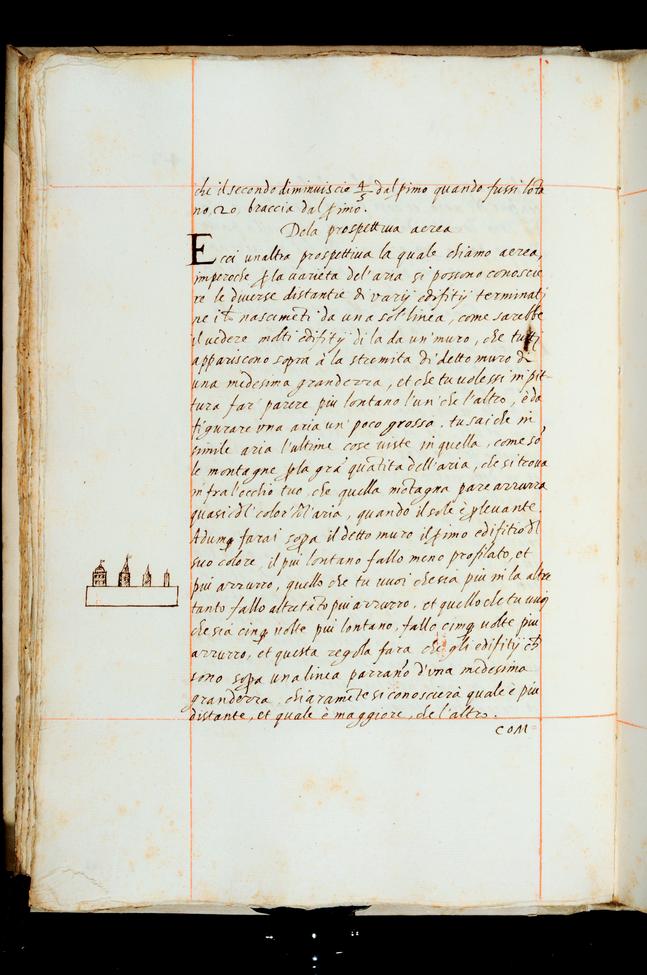 che il secondo diminuiscie 4/5 dal p̱imo quando fussi lõta
no, 20, braccia dal p̱imo.
Dela prospettiua aerea
Ecci un altra prospettiua la quale chiamo aerea,
imperoche p̱ la varieta del'aria si possono conoscie
re le diuerse distantie di varij edifitij terminati
ne i lr̃ nascimẽti da una sol' linea, come sarebbe
il uedere molti edifitij di la da un' muro, che tutti
appariscono sopra à la stremita di detto muro di
una medesima grandezza, et che tu uolessi in pit-
tura far' parere piu lontano l'un' che l'altro, è da
figurare vna aria un' poco grossa. tu sai che in
simile aria l'ultime cose uiste in quella, come so,
le montagne p̱ la grã quãtita dell'aria, che si troua
infra l'occhio tuo, che quella mõtagna pare azzurra
quasi dl' color' dll'aria, quando il sole è p̱ leuante
Adumq̱ farai sop̱a il detto muro il p̱imo edifitio dl
suo colore, il piu lontano fallo meno profilato, et
piu azzurro, quello che tu vuoi che sia piu in la altre
tanto fallo altretãto piu azzurro, et quello che tu uuoi
che sia cinq̱ uolte piu lontano, fallo cinq̱ uolte piu
azzurro, et questa regola fara che gli edifitij ch̃
sono sop̱a una linea parranno d'vna medesima
grandezza, chiaramẽte si conoscierà quale è piu
distante, et quale è maggiore, che l'altro.
COM=